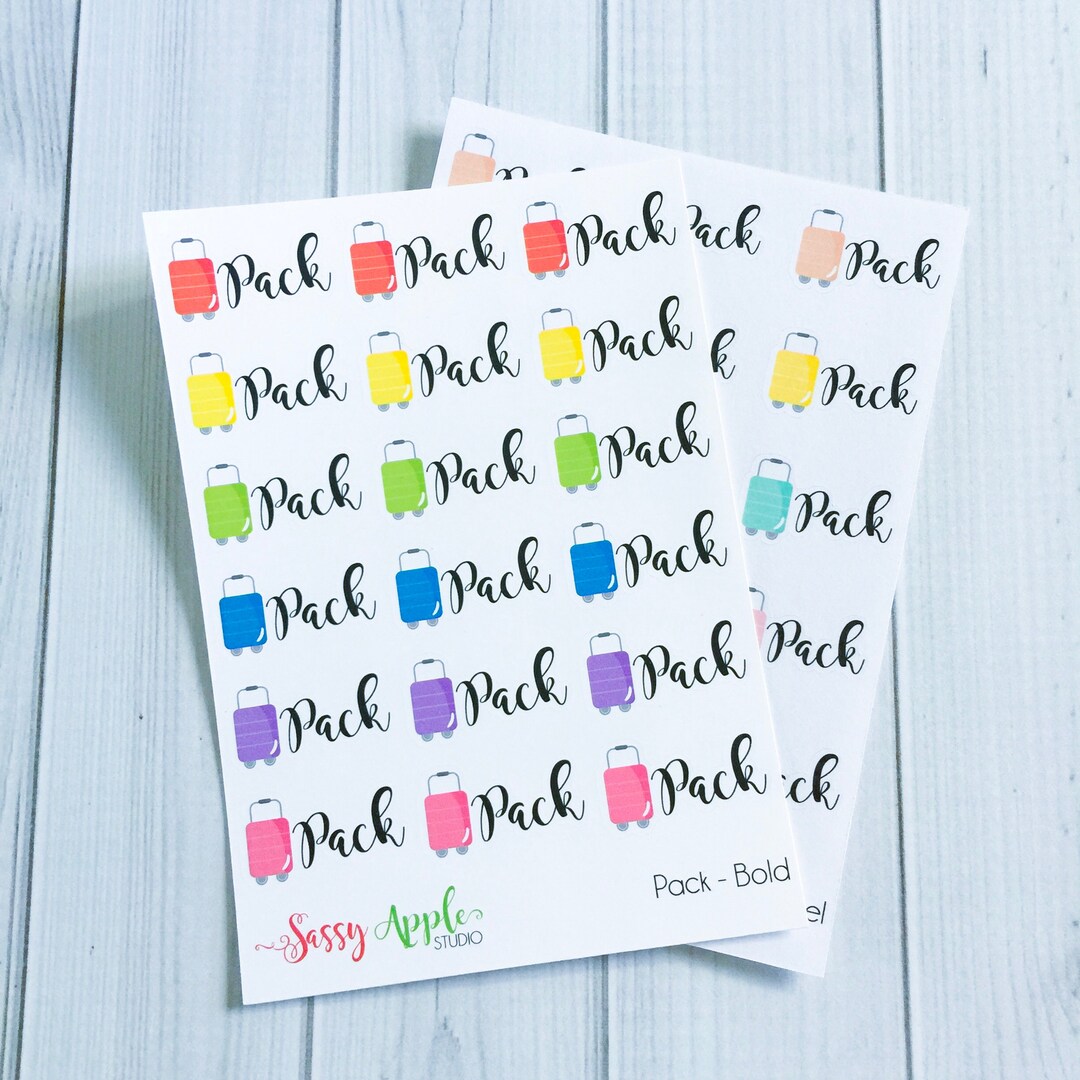 Pack Pack Pack
Pack Pack Pack
Pack Pack Pack
Pack Pack Pack
Pack Pack Pack
Pack Pack Pack
Pack - Bold
Sassy Apple
STUDIO
Pack
Pack
Pack
Pack